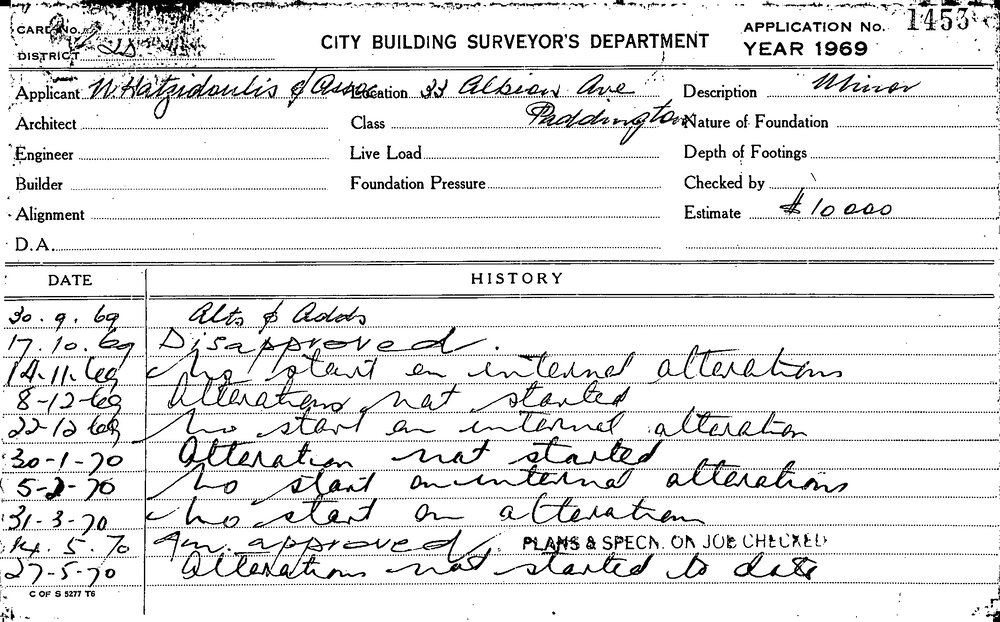 CARD No.
DISTRICT 2D
CITY BUILDING SURVEYOR'S DEPARTMENT
APPLICATION No. 1453
YEAR 1969
Applicant N. Hatzidoulis & Assoc Location 33 Albion Ave Description Minor
Architect Class Paddington Nature of Foundation
Engineer Live Load Depth of Footings
Builder Foundation Pressure Checked by
Alignment Estimate $10000
D.A.
DATE HISTORY
30.9.69 Alts & Adds
17.10.69 Disapproved.
14-11-69 No start on internal alterations
8-12-69 Alterations not started
22-12-69 No start on internal alteration
30-1-70 Alteration not started
5-2-70 No start on internal alterations
31-3-70 No start on alteration
14.5.70 Am. approved. PLANS & SPECN. ON JOB CHECKED
27-5-70 Alterations not started to date
C OF S 5277 T6